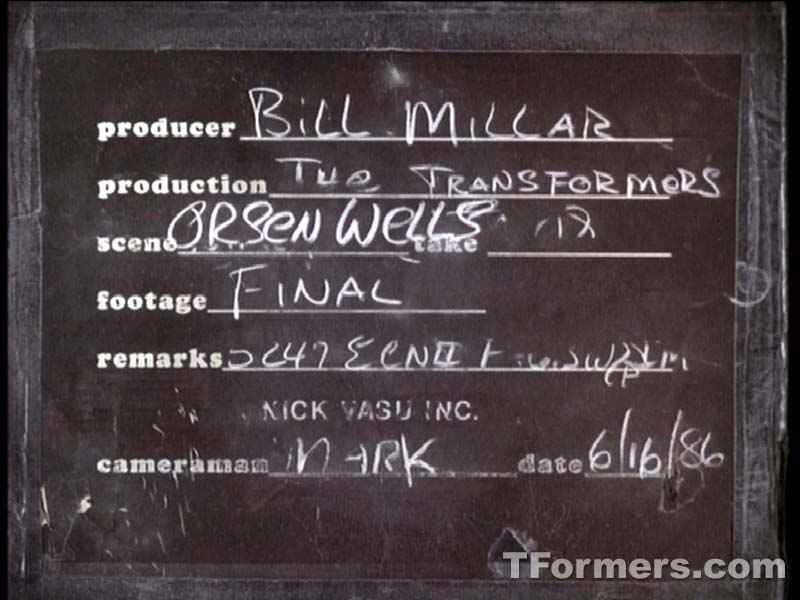 producer BiLL MiLLAR
production THE TRANSFORMERS
scene ORSEN WELLS take 12
footage FINAL
remarks 5247 ECN II
NICK VASU INC.
cameraman MARK date 6/16/86
TFormers.com